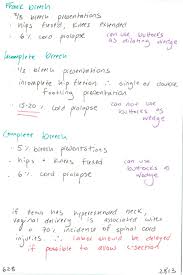 Frank breech
• 2/3 breech presentations
• hips flexed, knees extended
• 6% cord prolapse
can use buttocks as dilating wedge
Incomplete breech
• 1/3 breech presentations
• incomplete hip flexion ∴ single or double footling presentation
• 15-20% cord prolapse
can not use buttocks as wedge
Complete breech
• 5% breech presentations
• hips + knees flexed
• 6% cord prolapse
can use buttocks as wedge
• if fetus has hyperextended neck,
vaginal delivery is associated with
a 70% incidence of spinal cord
injuries ∴ labor should be delayed
if possible to allow c-section
628